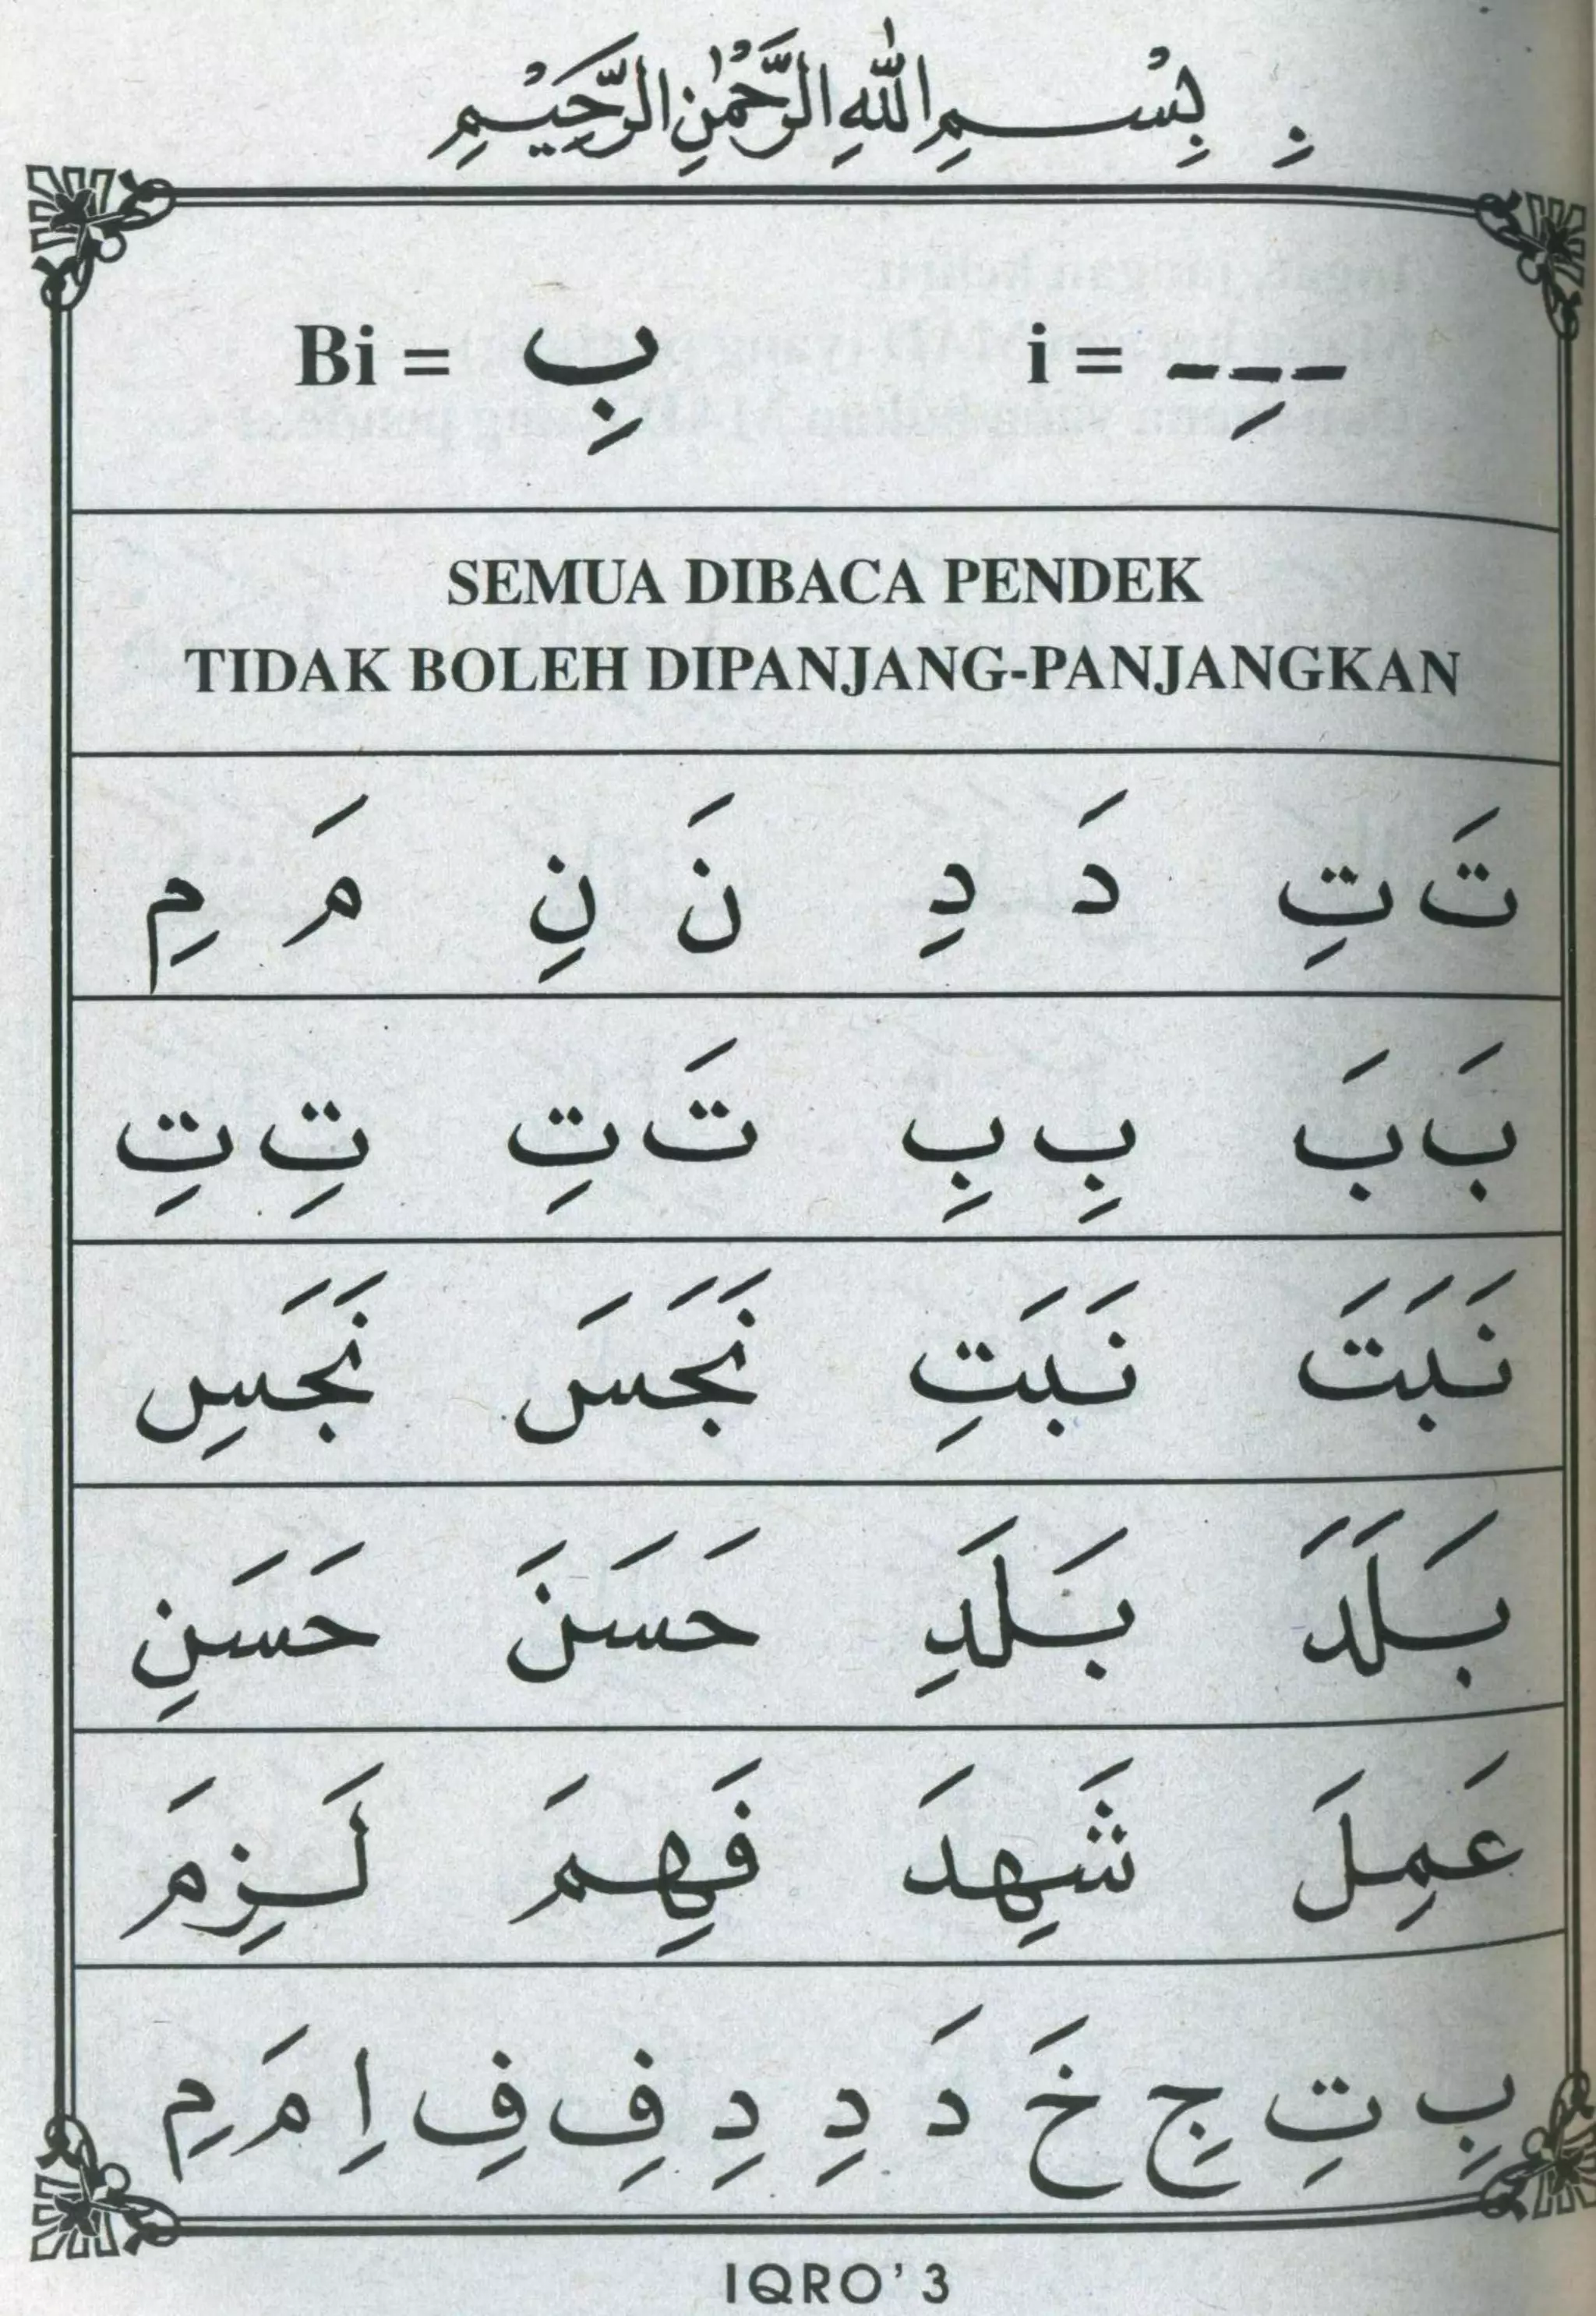 بِ بِسْمِ اللّٰهِ الرَّحْمٰنِ الرَّحِيْمِ
Bi = بِ i = ---ِ
SEMUA DIBACA PENDEK
TIDAK BOLEH DIPANJANG-PANJANGKAN
تَ تِ دَ دِ نَ نِ مَ مِ
بَ بَ بِ بِ تَ تِ تِ تِ
نَبَتَ نَبَتِ نَجَسَ نَجَسِ
بَلَدَ بَلَدِ حَسَنَ حَسَنِ
عَمِلَ شَهِدَ فَهِمَ لَزِمَ
بِ تِ جِ خَ دَ دِ دِ فِ فِ اِ مَ مِ
IQRO' 3